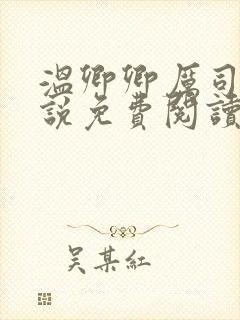 温卿卿厲司
說免費閱讀
吴某紅